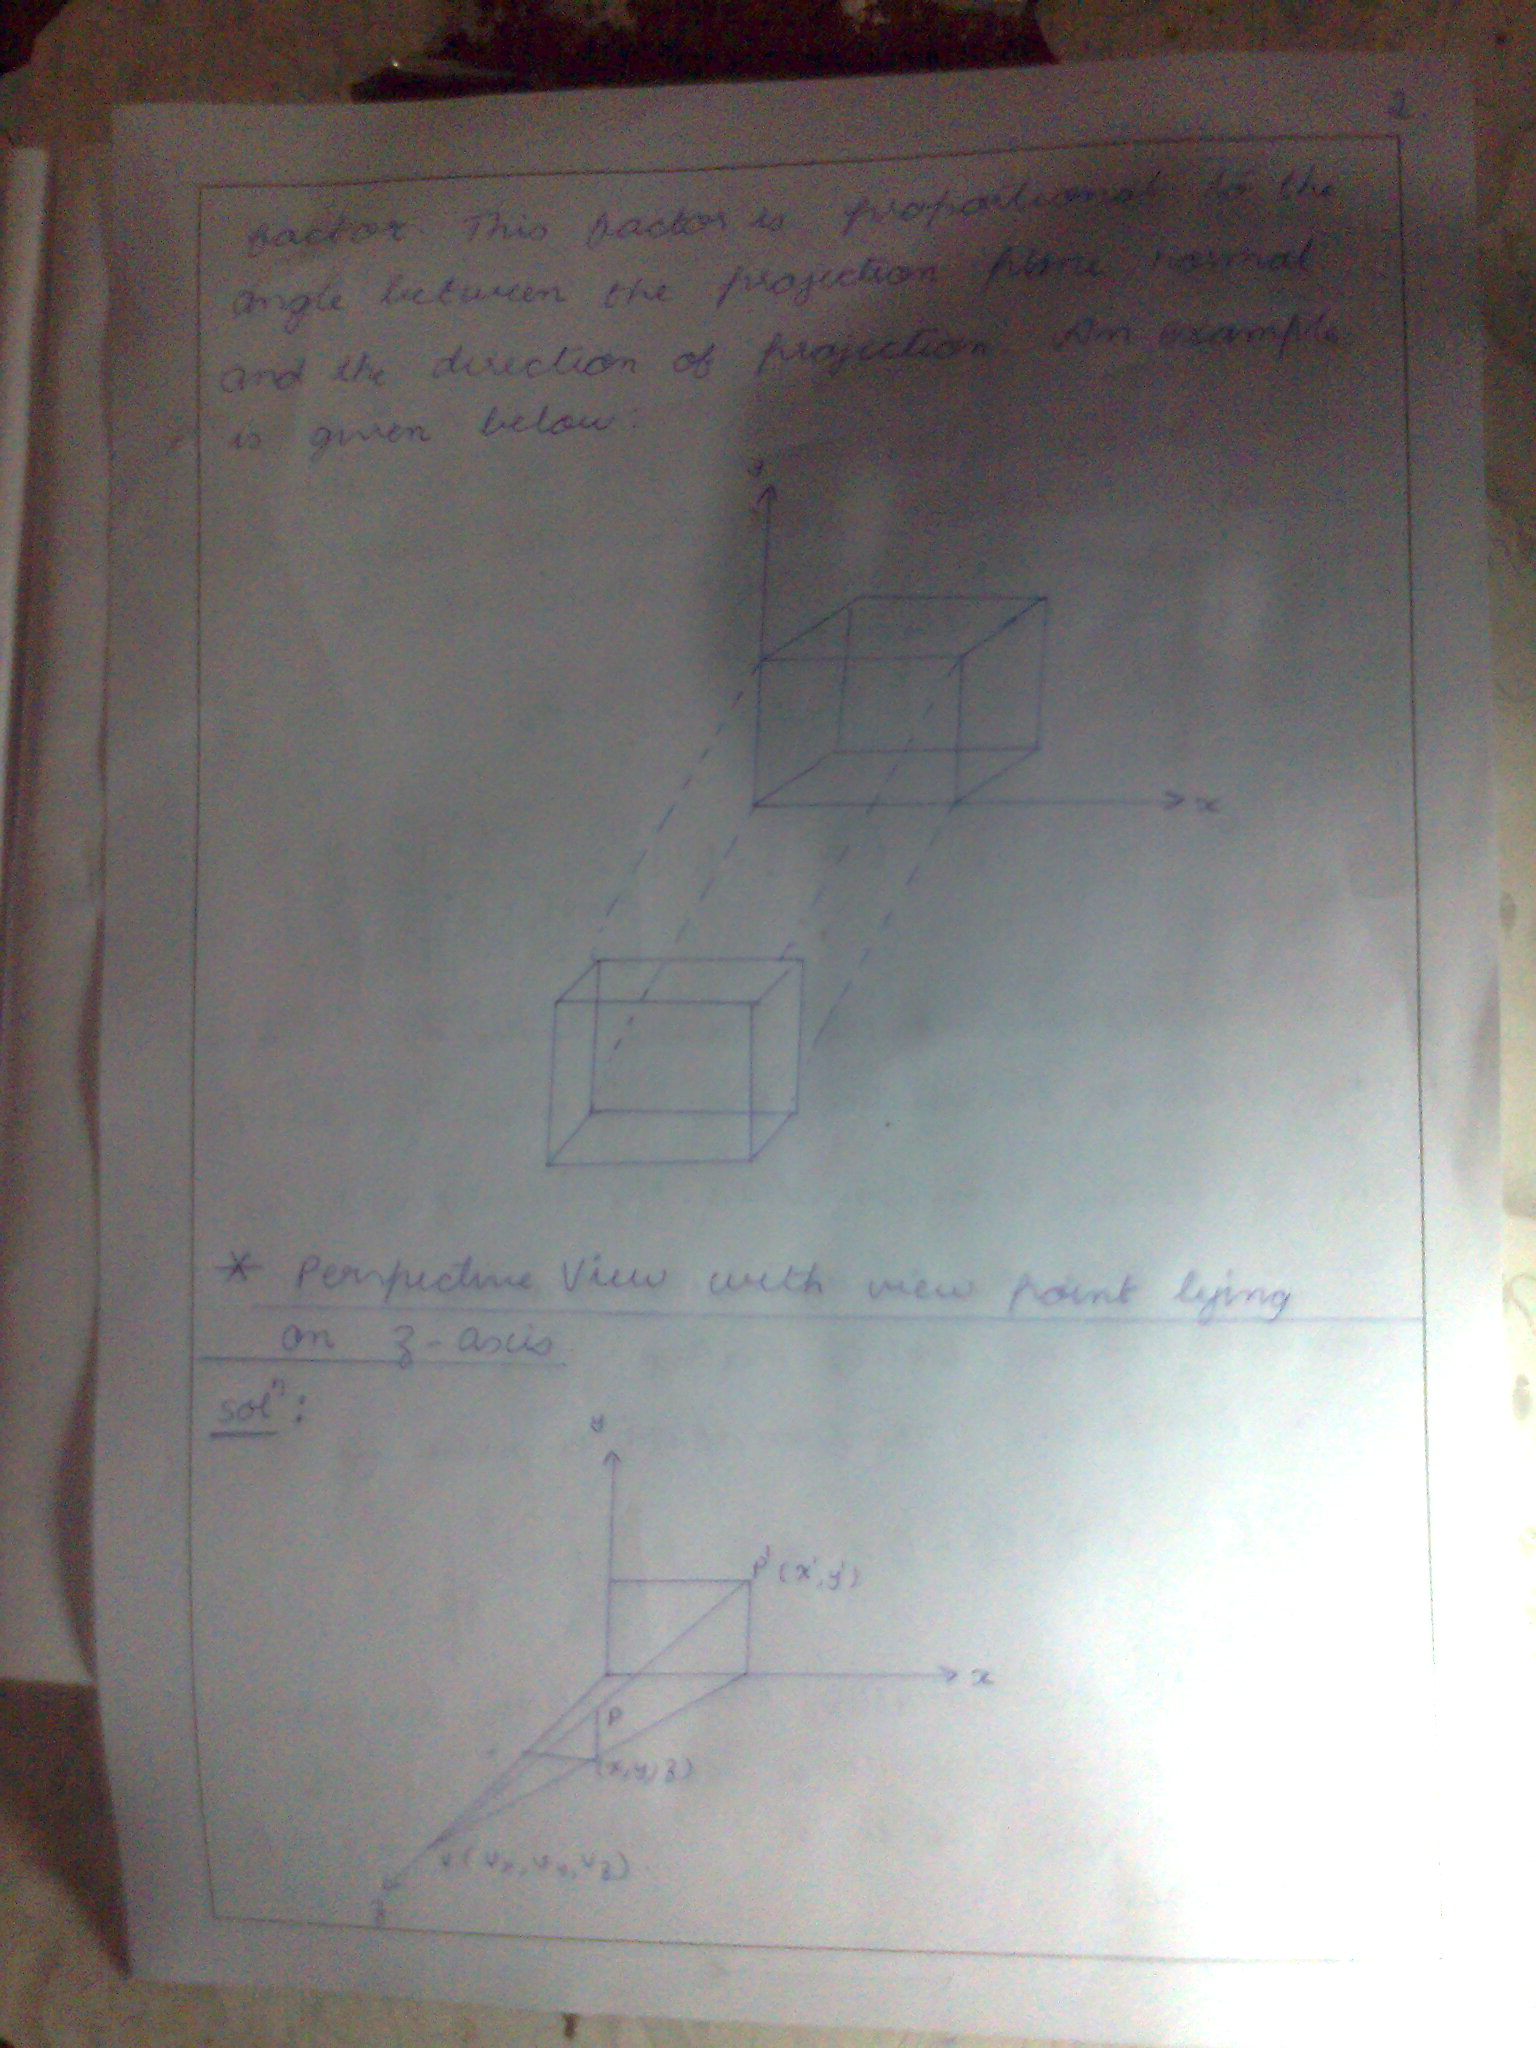 2.
factor. This factor is proportional to the
angle between the projection plane normal
and the direction of projection. An example
is given below:
y
x
* Perspective View with view point lying
on z-axis
solⁿ:
y
P'(x',y')
x
P
(x,y,z)
z